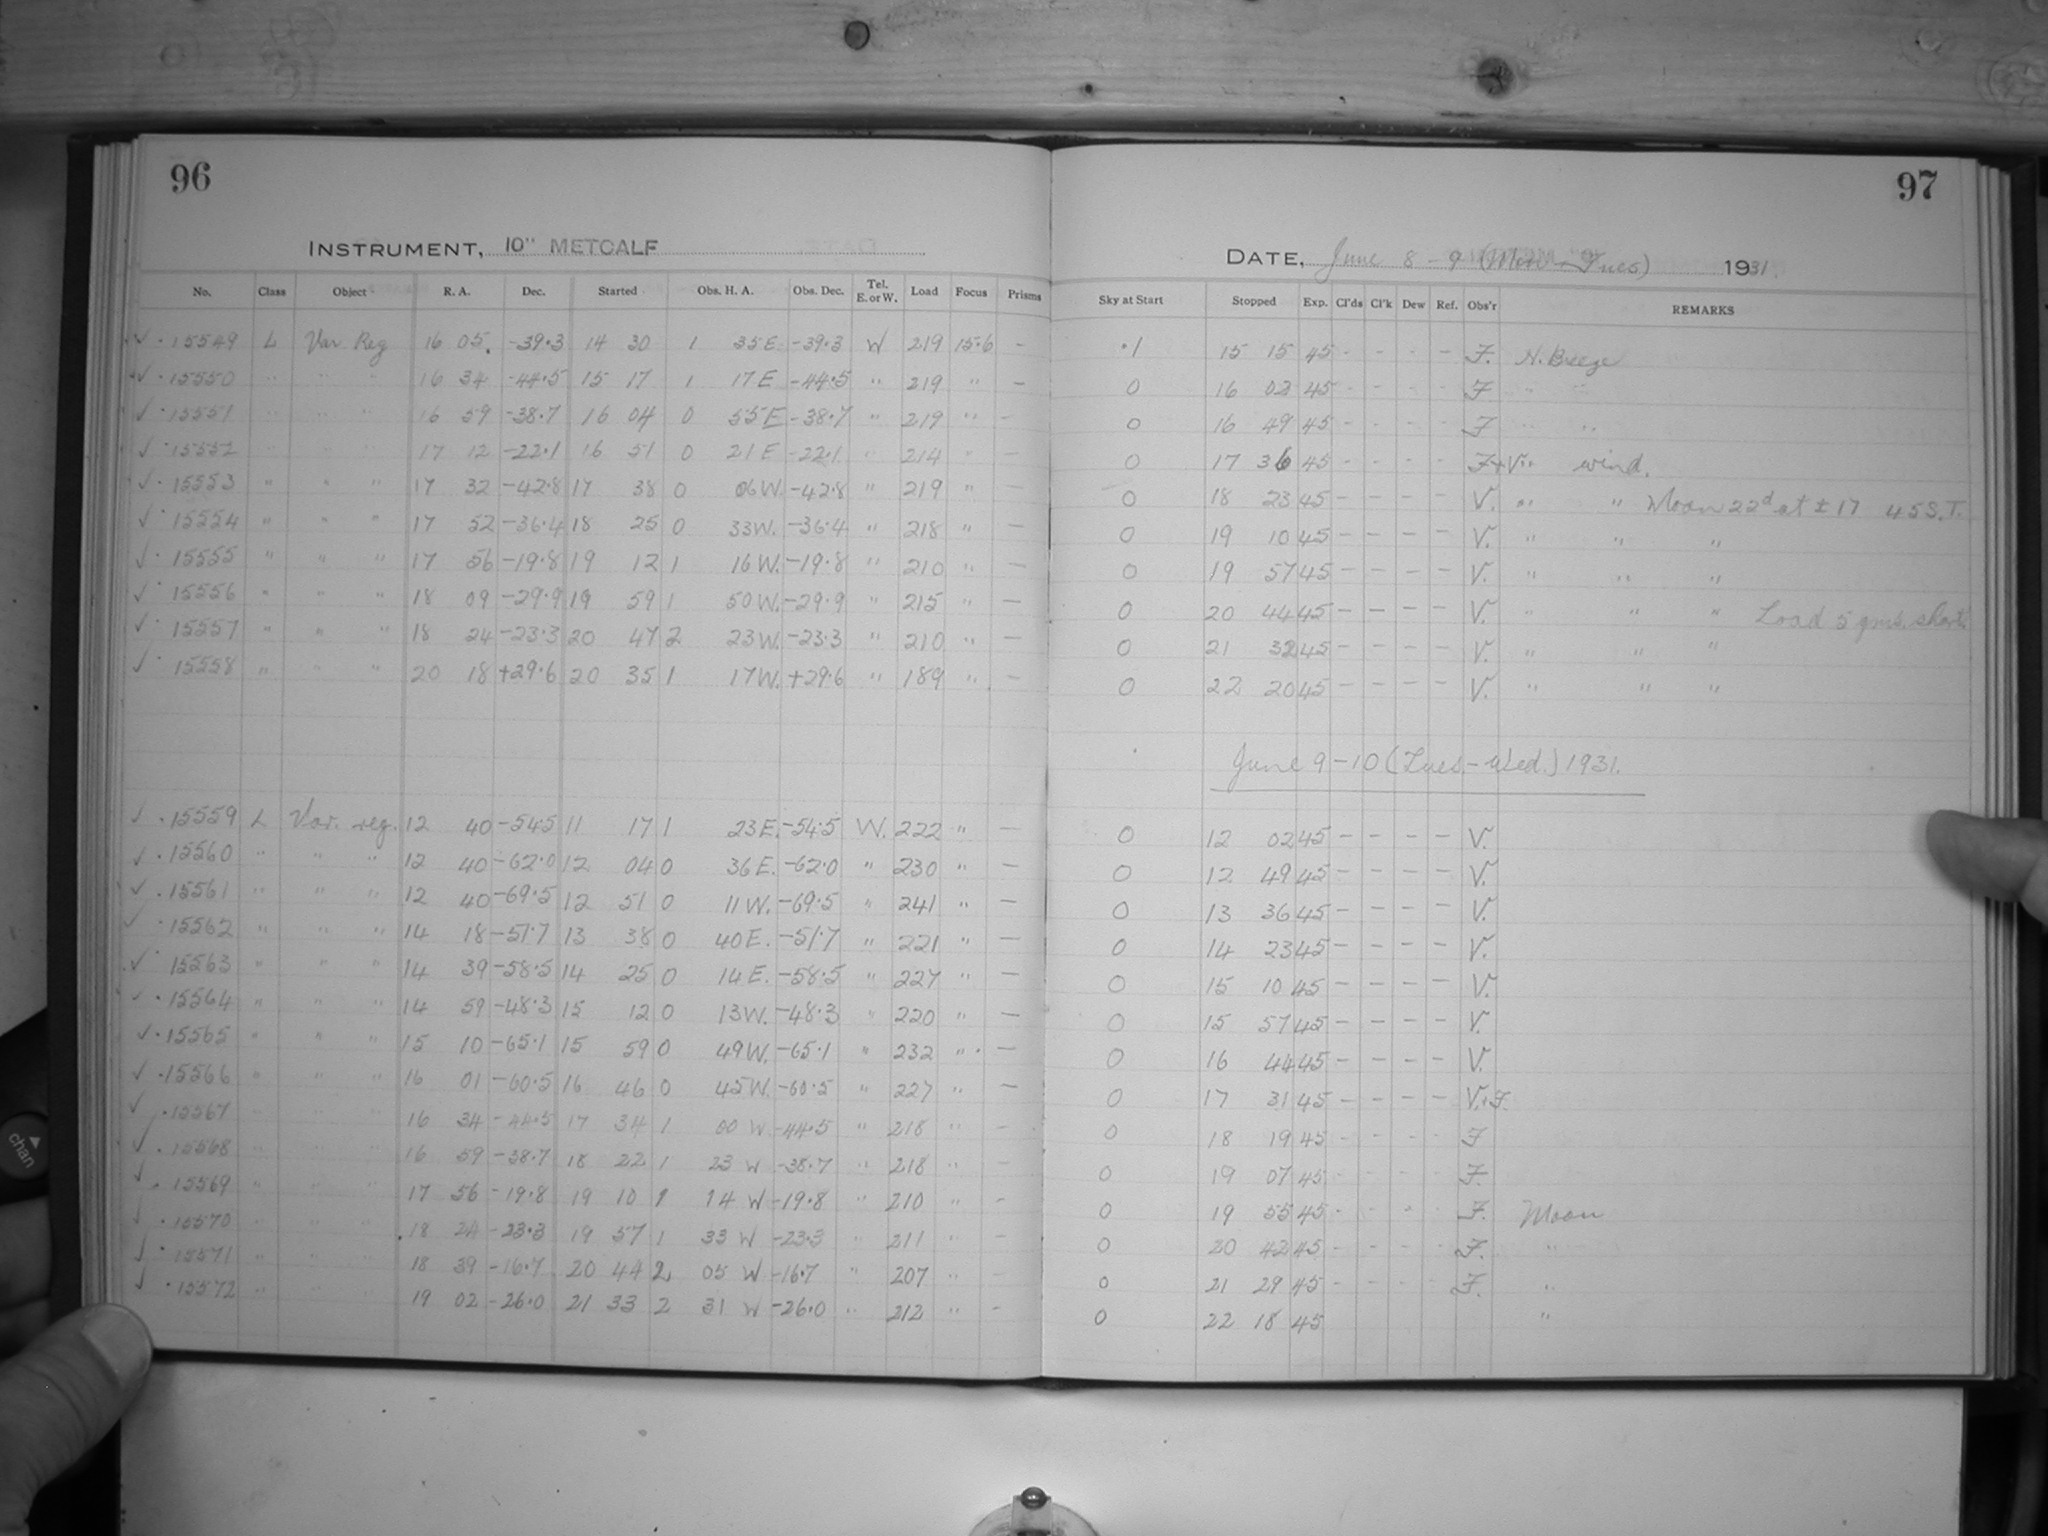 96
INSTRUMENT, 10" METCALF
No. Class Object R. A. Dec. Started Obs. H. A. Obs. Dec. Tel. E. or W. Load Focus Prisms
✓ · 15549 L Var. Reg 16 05. -39.3 14 30 1 35 E. -39.3 W 219 15.6 -
✓ · 15550 " " " 16 34 -44.5 15 17 1 17 E -44.5 " 219 " -
✓ · 15551 " " " 16 59 -38.7 16 04 0 55 E -38.7 " 219 " -
✓ · 15552 " " " 17 12 -22.1 16 51 0 21 E -22.1 " 214 " -
✓ · 15553 " " " 17 32 -42.8 17 38 0 06 W. -42.8 " 219 " -
✓ · 15554 " " " 17 52 -36.4 18 25 0 33 W. -36.4 " 218 " -
✓ · 15555 " " " 17 56 -19.8 19 12 1 16 W. -19.8 " 210 " -
✓ · 15556 " " " 18 09 -29.9 19 59 1 50 W. -29.9 " 215 " -
✓ · 15557 " " " 18 24 -23.3 20 47 2 23 W. -23.3 " 210 " -
✓ · 15558 " " " 20 18 +29.6 20 35 1 17 W. +29.6 " 189 " -
✓ · 15559 L Var. reg. 12 40 -54.5 11 17 1 23 E. -54.5 W. 222 " -
✓ · 15560 " " " 12 40 -62.0 12 04 0 36 E. -62.0 " 230 " -
✓ · 15561 " " " 12 40 -69.5 12 51 0 11 W. -69.5 " 241 " -
✓ · 15562 " " " 14 18 -51.7 13 38 0 40 E. -51.7 " 221 " -
✓ · 15563 " " " 14 39 -58.5 14 25 0 14 E. -58.5 " 227 " -
✓ · 15564 " " " 14 59 -48.3 15 12 0 13 W. -48.3 " 220 " -
✓ · 15565 " " " 15 10 -65.1 15 59 0 49 W. -65.1 " 232 " -
✓ · 15566 " " " 16 01 -60.5 16 46 0 45 W. -60.5 " 227 " -
✓ · 15567 " " " 16 34 -44.5 17 34 1 00 W -44.5 " 218 " -
✓ · 15568 " " " 16 59 -38.7 18 22 1 23 W -38.7 " 218 " -
✓ · 15569 " " " 17 56 -19.8 19 10 1 14 W -19.8 " 210 " -
✓ · 15570 " " " 18 24 -23.3 19 57 1 33 W -23.3 " 211 " -
✓ · 15571 " " " 18 39 -16.7 20 44 2 05 W -16.7 " 207 " -
✓ · 15572 " " " 19 02 -26.0 21 33 2 31 W -26.0 " 212 " -
97
DATE, June 8 - 9 (Mon - Tues) 1931.
Sky at Start Stopped Exp. Cl'ds Cl'k Dew Ref. Obs'r REMARKS
.1 15 15 45 - - - - F. N. Breeze
0 16 02 45 - - - - F " "
0 16 49 45 - - - - F " "
0 17 36 45 - - - - F+V " wind.
0 18 23 45 - - - - V. " " Moon 22d at ± 17 45 S.T.
0 19 10 45 - - - - V. " " "
0 19 57 45 - - - - V. " " "
0 20 44 45 - - - - V. " " " Load 5 gms. short.
0 21 32 45 - - - - V. " " "
0 22 20 45 - - - - V. " " "
June 9 - 10 (Tues. - Wed.) 1931.
0 12 02 45 - - - - V.
0 12 49 45 - - - - V.
0 13 36 45 - - - - V.
0 14 23 45 - - - - V.
0 15 10 45 - - - - V.
0 15 57 45 - - - - V.
0 16 44 45 - - - - V.
0 17 31 45 - - - - V.+F.
0 18 19 45 - - - - F
0 19 07 45 - - - - F.
0 19 55 45 - - - - F. Moon
0 20 42 45 - - - - F. "
0 21 29 45 - - - - F. "
0 22 18 45 "
chan